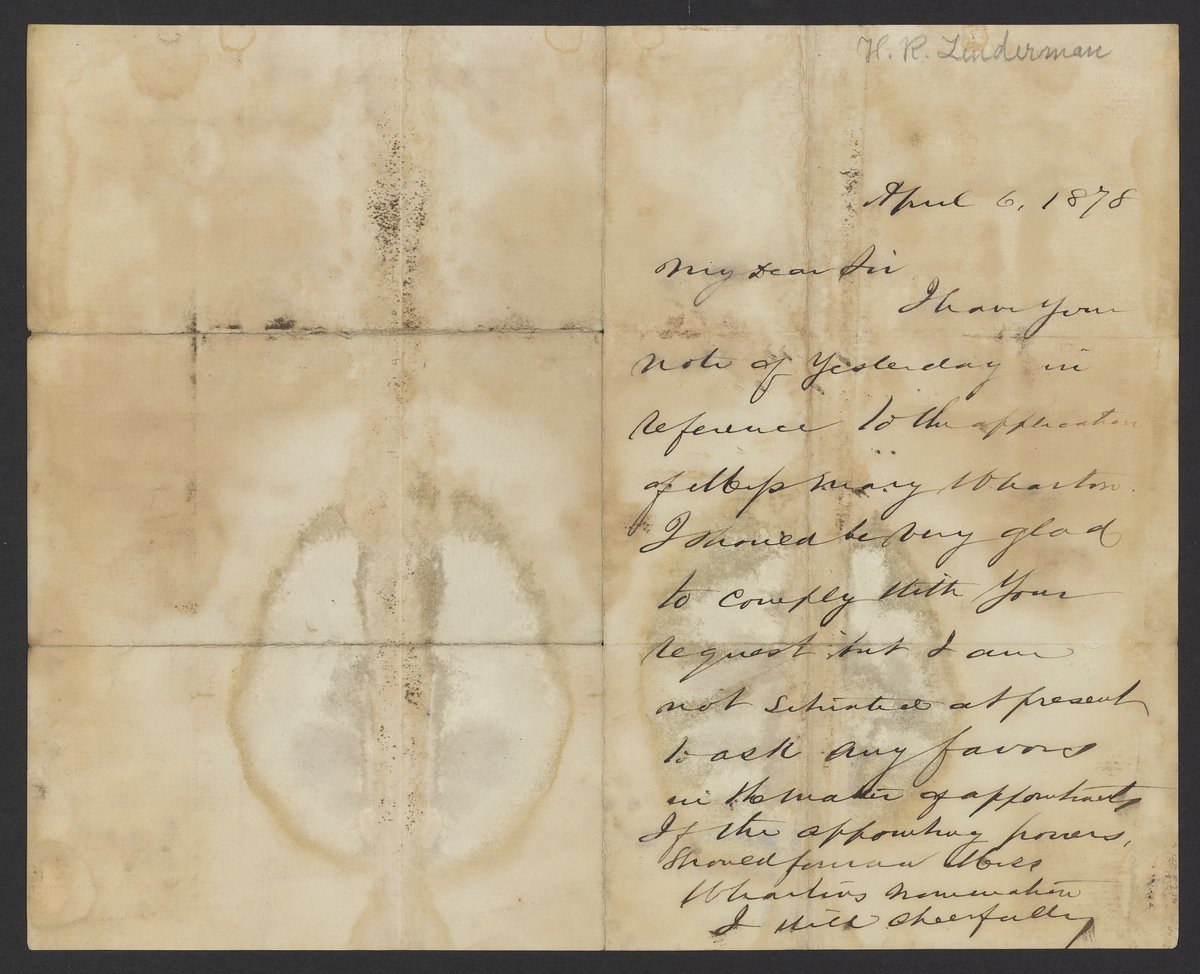 H. R. Linderman
April 6, 1878
My Dear Sir
I have your
note of yesterday in
reference to the application
of Miss Mary Wharton.
I should be very glad
to comply with your
request but I am
not situated at present
to ask any favors
in the matter of appointments
If the appointing powers,
should forward Miss
Whartons nomination
I will cheerfully